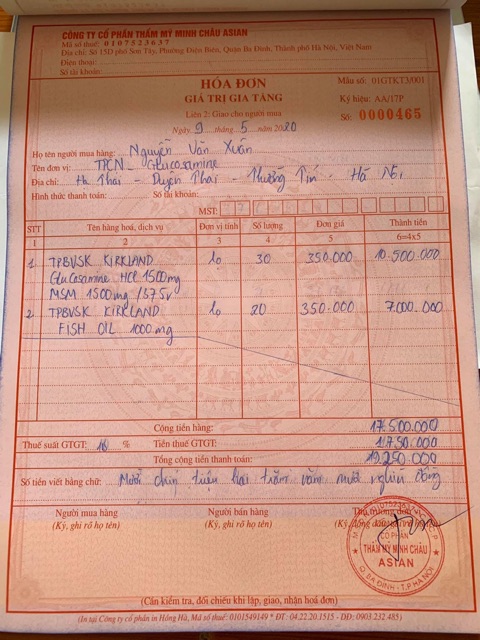 CÔNG TY CỔ PHẦN THẨM MỸ MINH CHÂU ASIAN
Mã số thuế: 0107523637
Địa chỉ: Số 15D phố Sơn Tây, Phường Điện Biên, Quận Ba Đình, Thành phố Hà Nội, Việt Nam
Điện thoại:
Số tài khoản:
HÓA ĐƠN
GIÁ TRỊ GIA TĂNG
Liên 2: Giao cho người mua
Ngày 9 tháng 5 năm 2020
Mẫu số: 01GTKT3/001
Ký hiệu: AA/17P
Số: 0000465
Họ tên người mua hàng: Nguyễn Văn Xuân
Tên đơn vị: TPCN - Glucosamine
Địa chỉ: Thái - Duyên Thái - Thường Tín - Hà Nội
Hình thức thanh toán: Số tài khoản:
MST:
STT Tên hàng hoá, dịch vụ Đơn vị tính Số lượng Đơn giá Thành tiền
1 2 3 4 5 6=4x5
1 TPBVSK KIRKLAND lọ 30 350.000 10.500.000
Glucosamine HCl 1500mg
MSM 1500mg /375v
2 TPBVSK KIRKLAND lọ 20 350.000 7.000.000
FISH OIL 1000mg
Cộng tiền hàng: 17.500.000
Thuế suất GTGT: 10 % Tiền thuế GTGT: 1.750.000
Tổng cộng tiền thanh toán: 19.250.000
Số tiền viết bằng chữ: Mười chín triệu hai trăm năm mươi nghìn đồng
Người mua hàng Người bán hàng Thủ trưởng đơn vị
(Ký, ghi rõ họ tên) (Ký, ghi rõ họ tên)
CỔ PHẦN
THẨM MỸ MINH CHÂU
ASIAN
Q. BA ĐÌNH - T.P HÀ NỘI
(Cần kiểm tra, đối chiếu khi lập, giao, nhận hoá đơn)
(In tại Công ty cổ phần in Hồng Hà, Mã số thuế: 0101549149 * ĐT: 04.22.20.1515 - DĐ: 0903 232 485)